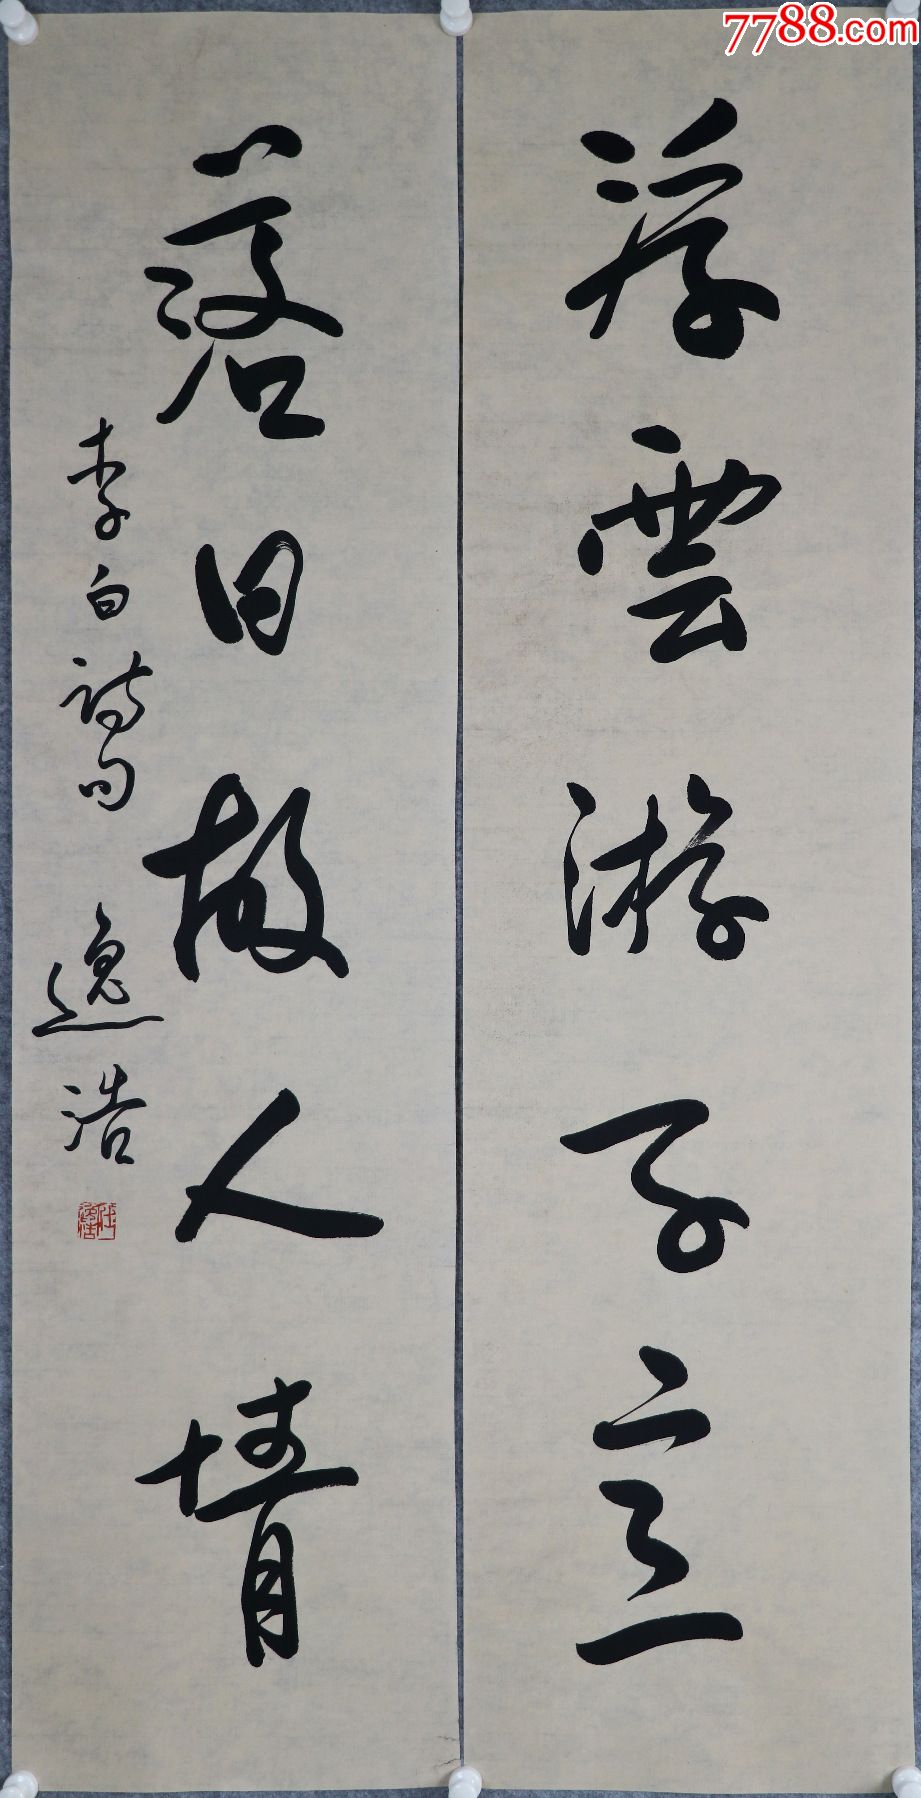 7788.com
浮雲游子意
落日故人情
李白詩句 逸浩